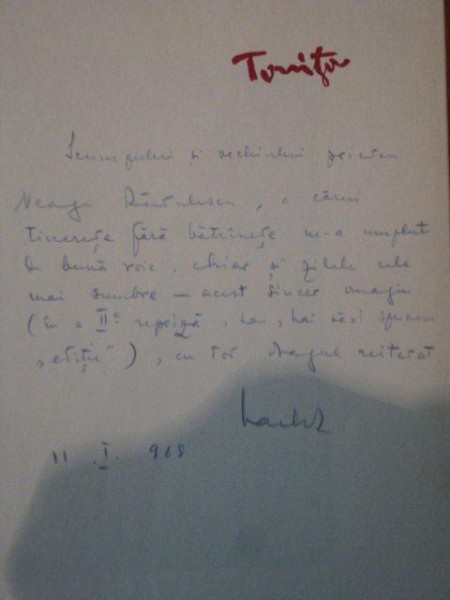 Tonitza
și vechiului prieten
Neagu Rădulescu, a cărui
tinerețe fără bătrînețe m-a umplut
de bună voie, chiar și zilele cele
mai sumbre — acest sincer omagiu
(în a IIa repriză, sau, hai să-i spunem
„ediție”), cu tot dragul reiterat
11 .I. 968